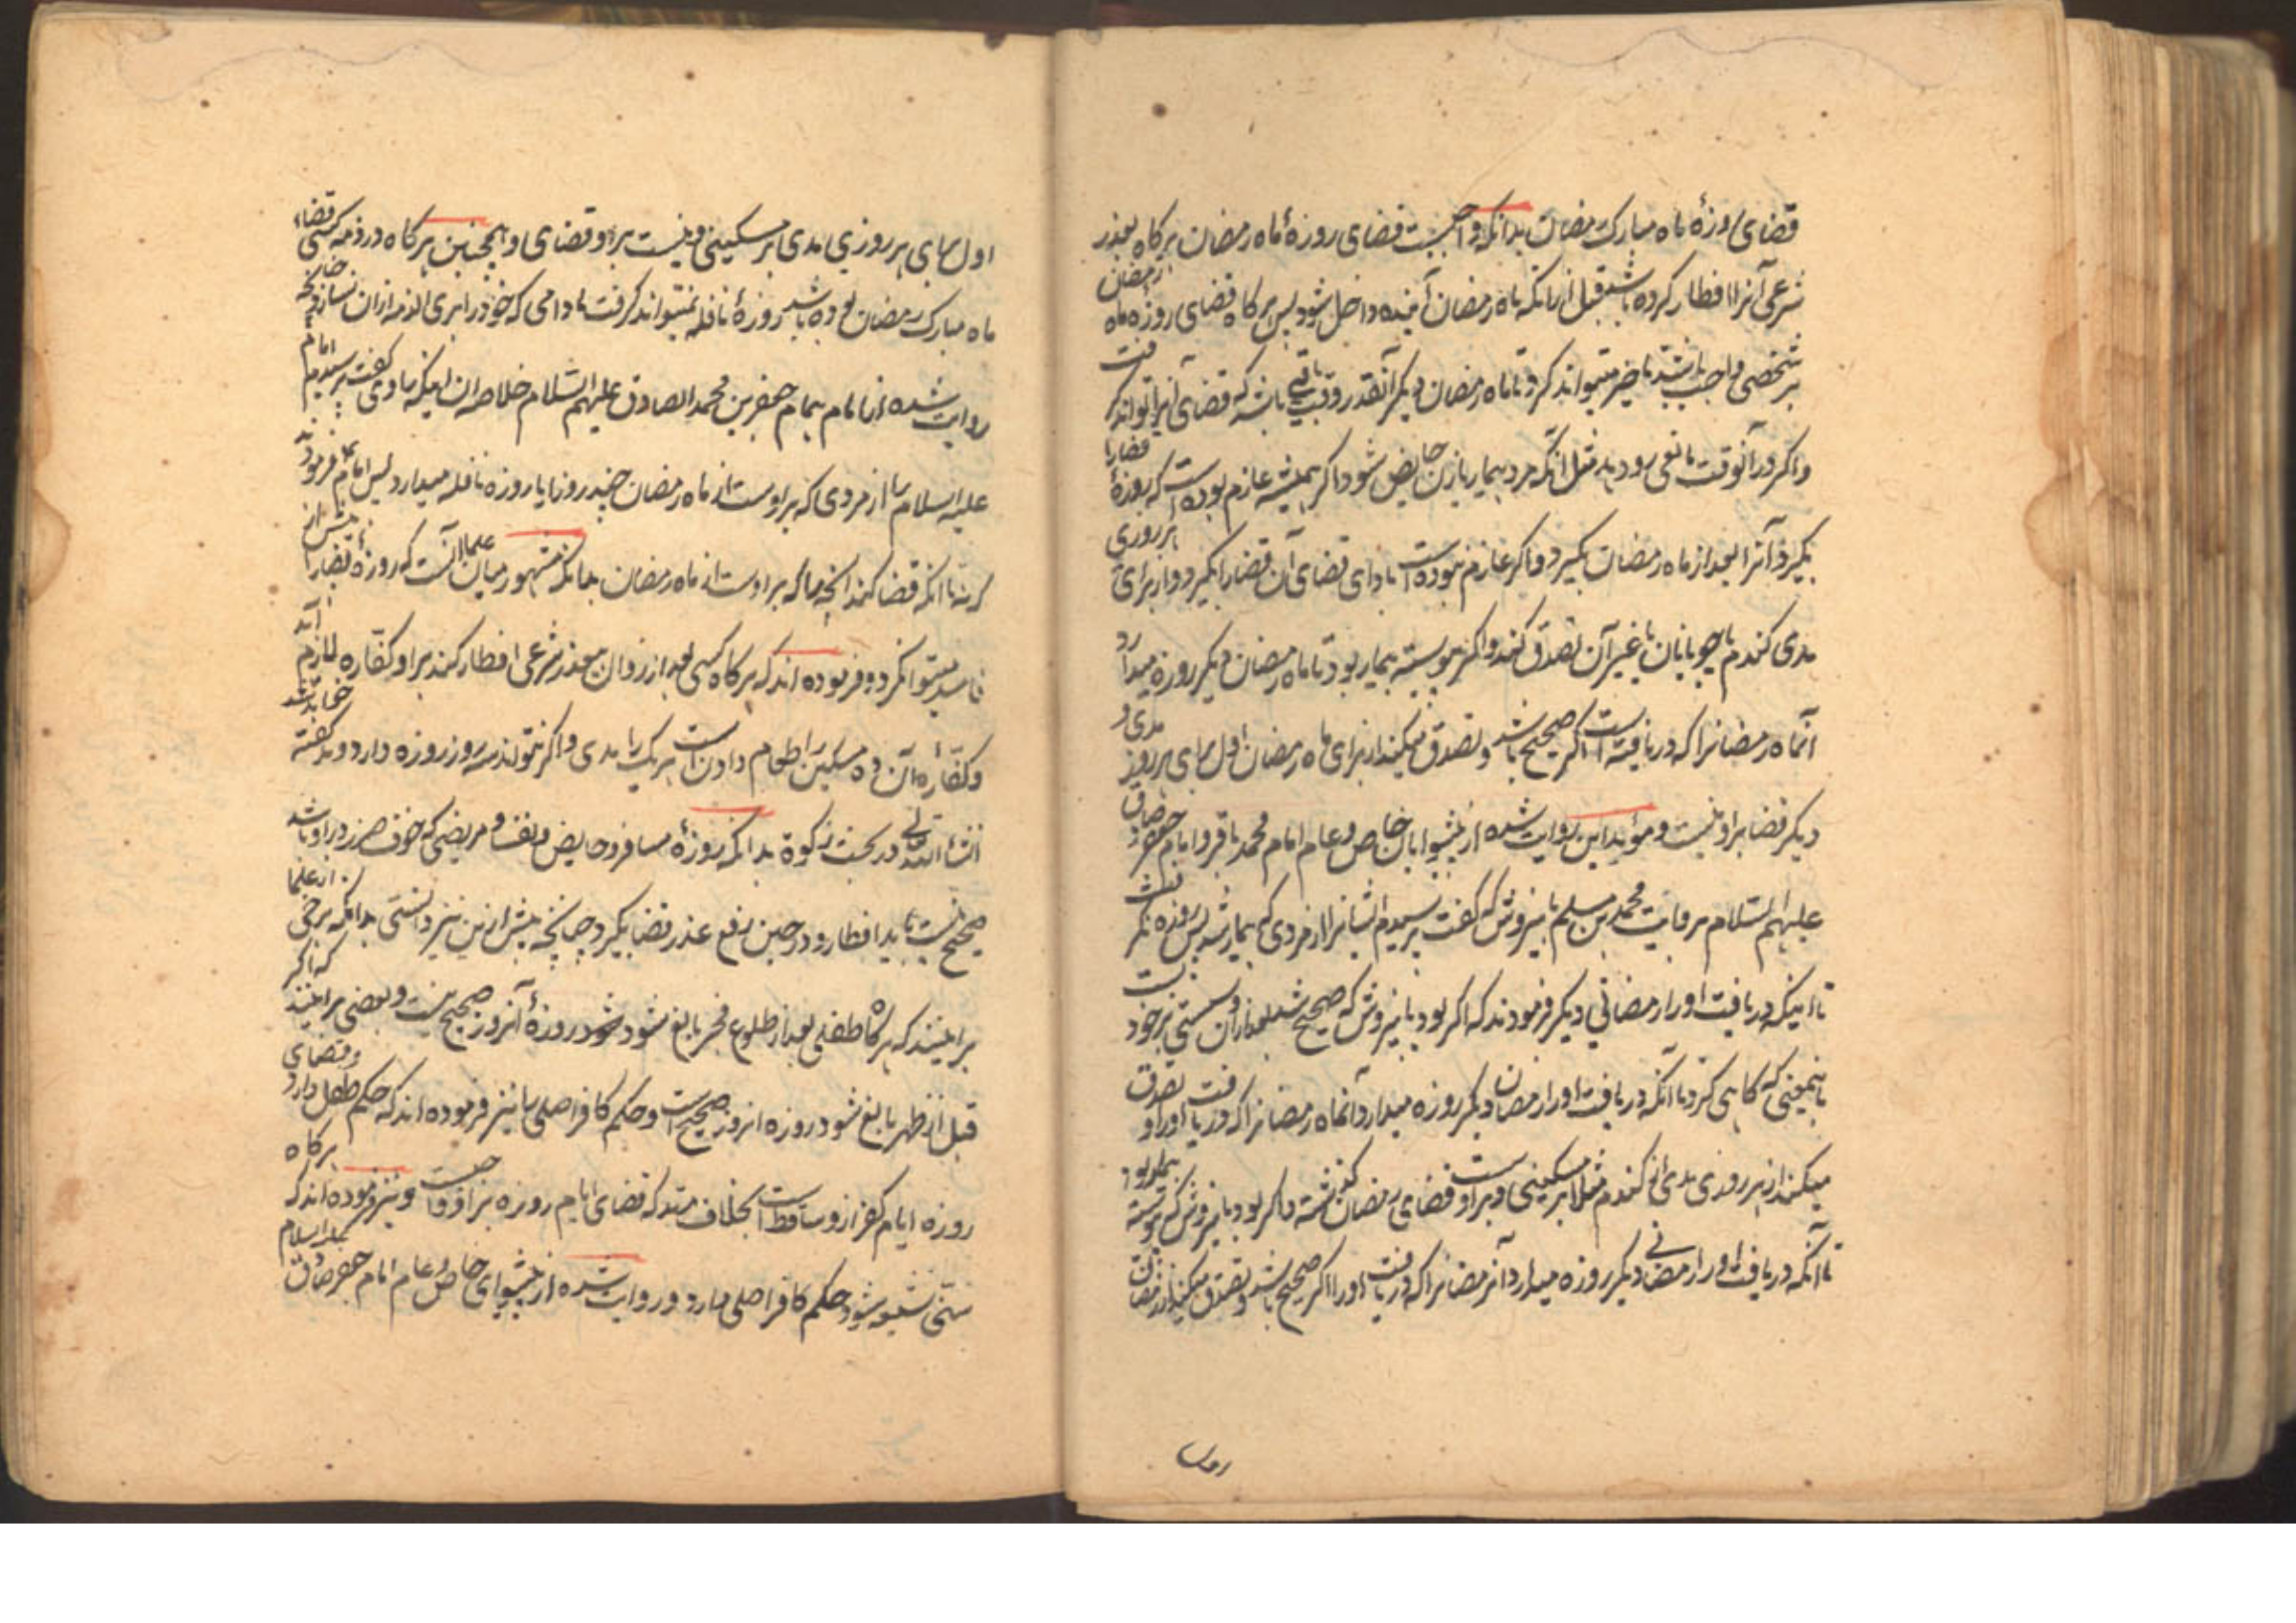 قضای روزهٔ ماه مبارک رمضان بدانکه واجبست قضای روزهٔ ماه رمضان هرکاه بعذر
شرعی آنرا افطار کرده باشد قبل از انکه ماه رمضان آینده داخل شود پس هرکاه قضای روزه ماه رمضان
بر شخصی واجب باشد تاخیر میتواند کرد تا ماه رمضان دیکر آنقدر وقت باقی باشد که قضای آنرا تواند کرفت
واکر در آنوقت مانعی رو دهد مثل آنکه مرد بیمار یا زن حایض شود اکر همیشه عازم بوده است که روزهٔ قضا را
بکیرد آنرا بعد از ماه رمضان بکیرد واکر عازم نبوده است بادای قضای آن قضا را بکیرد و از برای هر روزی
مدی کندم یا جو یا نان یا غیر آن تصدق کند واکر پیوسته بیمار بود تا ماه رمضان دیکر روزه میدارد
آنماه رمضانرا که دریافته است اکر صحیح باشد و تصدق میکند از برای ماه رمضان اول بهای هر روز مدی و
دیکر قضا بر او نیست و مؤید این روایت شده از پیشوایان خاص و عام امام محمد باقر و امام جعفر صادق
علیهم السلام بروایت محمد بن مسلم باینروش که کفت پرسیدم ایشانرا از مردی که بیمار شد پس روزه نکرفت
تا اینکه دریافت او را رمضانی دیکر فرمودند که اکر بود باینروش که صحیح شد بعد از آن و سستی بر خود بست
باینمعنی که کاهلی کرد تا آنکه دریافت او را رمضان دیکر روزه میدارد آنماه رمضانرا که دریافت او را و تصدق
میکند از هر روزی مدی از کندم مثلا بر مسکینی و بر اوست قضای رمضان کذشته واکر بود باینروش که پیوسته بیمار بود
تا آنکه دریافت او را رمضانی دیکر روزه میدارد آنرمضانرا که دریافت او را اکر صحیح باشد و تصدق میکند از رمضان
اول بهای هر روزی مدی بر مسکینی و نیست بر او قضای او همچنین هرکاه در ذمه کسی قضاء
ماه مبارک رمضان بوده باشد روزهٔ نافله نمیتواند کرفت مادامی که خود را بری الذمه از ان نسازد چنانچه
روایت شده از امام همام جعفر بن محمد الصادق علیهم السلام خلاصه ان اینکه راوی کفت پرسیدم امام
علیه السلام را از مردی که بر اوست از ماه رمضان چند روز ایا روزه نافله میدارد پس امام فرمود نه
تا انکه قضا کند انچه را که بر اوست از ماه رمضان بدانکه مشهور میان علما آنست که روزهٔ قضا را پیش از
فاسد میتوان کرد و فرموده اند که هرکاه کسی بعد از زوال بعذر شرعی افطار کند بر او کفاره لازم آید
و کفارهٔ آن ده مسکین را طعام دادنست هر یک را مدی واکر نتواند سه روز روزه دارد و مد کفته
انشاء الله تعالی در بحث زکوة بدانکه روزهٔ مسافر و حایض و نفسا و مریضی که خوف ضرر در او باشد
صحیح نیست باید افطار و در حین رفع عذر قضا بکیرد چنانچه پیش از این نیز دانستی بدانکه برخی از علما
برانند که هرکاه طفلی بعد از طلوع فجر بالغ شود روزهٔ آنروز صحیح نیست و بعضی برانند که اکر
قبل از ظهر بالغ شود روزه انروز صحیح است و حکم کافر اصلی را نیز فرموده اند که حکم طفل دارد و قضای
روزه ایام کفر از و ساقط است بخلاف مرتد که قضای ایام روزه بر او واجبست و نیز فرموده اند که هرکاه
سنی شیعه شود حکم کافر اصلی دارد و روایت شده از پیشوای خاص و عام امام جعفر صادق علیه السلام